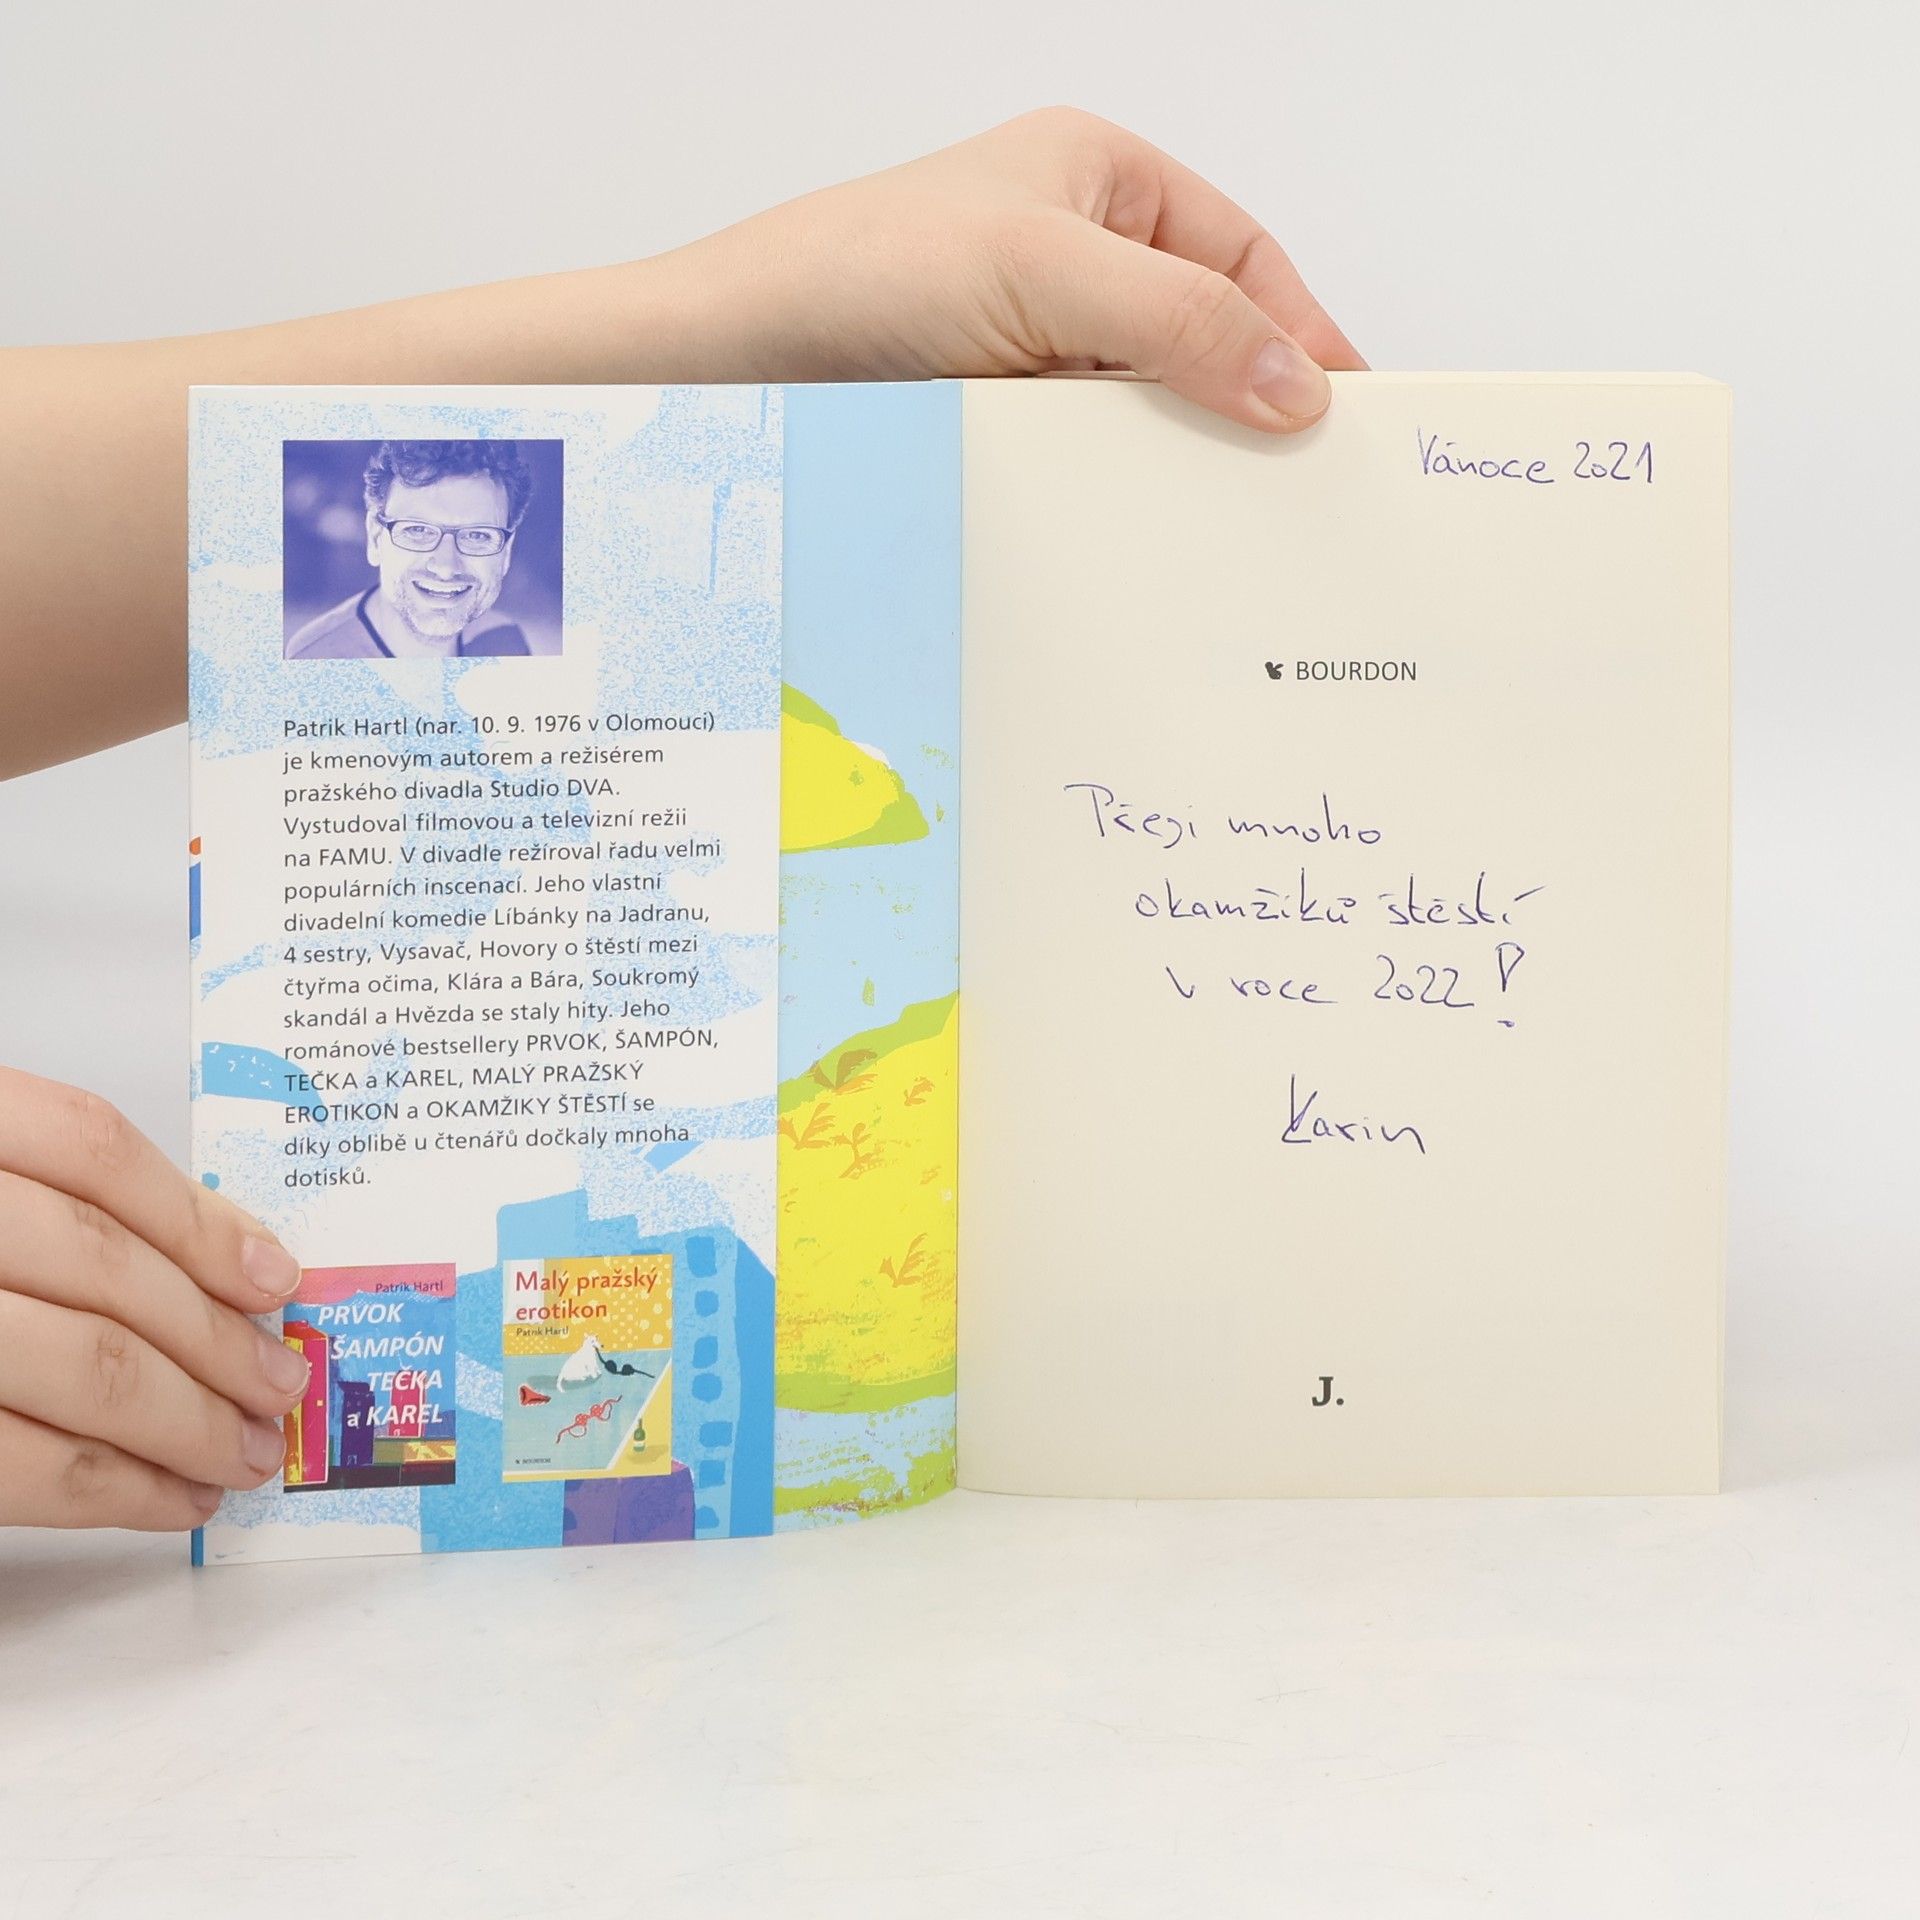 Patrik Hartl (nar. 10. 9. 1976 v Olomouci)
je kmenovým autorem a režisérem
pražského divadla Studio DVA.
Vystudoval filmovou a televizní režii
na FAMU. V divadle režíroval řadu velmi
populárních inscenací. Jeho vlastní
divadelní komedie Líbánky na Jadranu,
4 sestry, Vysavač, Hovory o štěstí mezi
čtyřma očima, Klára a Bára, Soukromý
skandál a Hvězda se staly hity. Jeho
románové bestsellery PRVOK, ŠAMPÓN,
TEČKA a KAREL, MALÝ PRAŽSKÝ
EROTIKON a OKAMŽIKY ŠTĚSTÍ se
díky oblibě u čtenářů dočkaly mnoha
dotisků.
Patrik Hartl
PRVOK
ŠAMPÓN
TEČKA
a KAREL
Malý pražský
erotikon
Patrik Hartl
BOURDON
Vánoce 2021
BOURDON
Přeji mnoho
okamžiků štěstí
v roce 2022!
Karin
J.